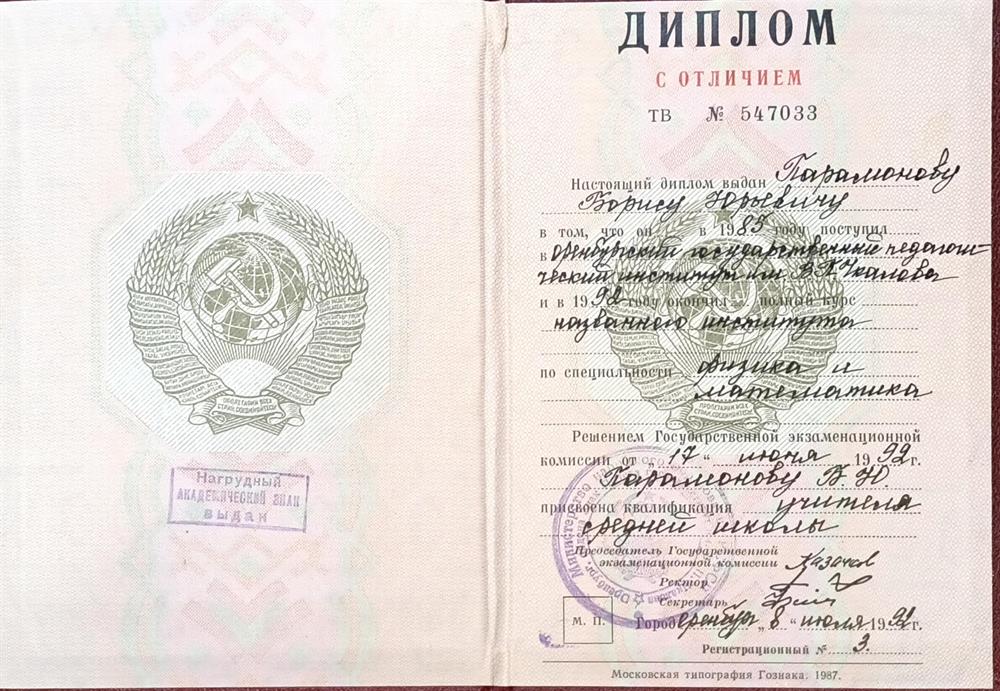 ПРОЛЕТАРИИ ВСЕХ
СТРАН, СОЕДИНЯЙТЕСЬ!
Нагрудный
АКАДЕМИЧЕСКИЙ ЗНАК
выдан
ДИПЛОМ
С ОТЛИЧИЕМ
ТВ № 547033
Настоящий диплом выдан Парамонову
Борису Юрьевичу
в том, что он в 1985 году поступил
в Оренбургский государственный педагоги-
ческий институт им. В.П.Чкалова
и в 1992 году окончил полный курс
названного института
по специальности физика и
математика
Решением Государственной экзаменационной
комиссии от „17“ июня 1992 г.
Парамонову Б. Ю.
присвоена квалификация учителя
средней школы
Председатель Государственной
экзаменационной комиссии
Ректор
Секретарь
М. П. Город Оренбург „8“ июля 1992 г.
Регистрационный № 3.
Московская типография Гознака. 1987.